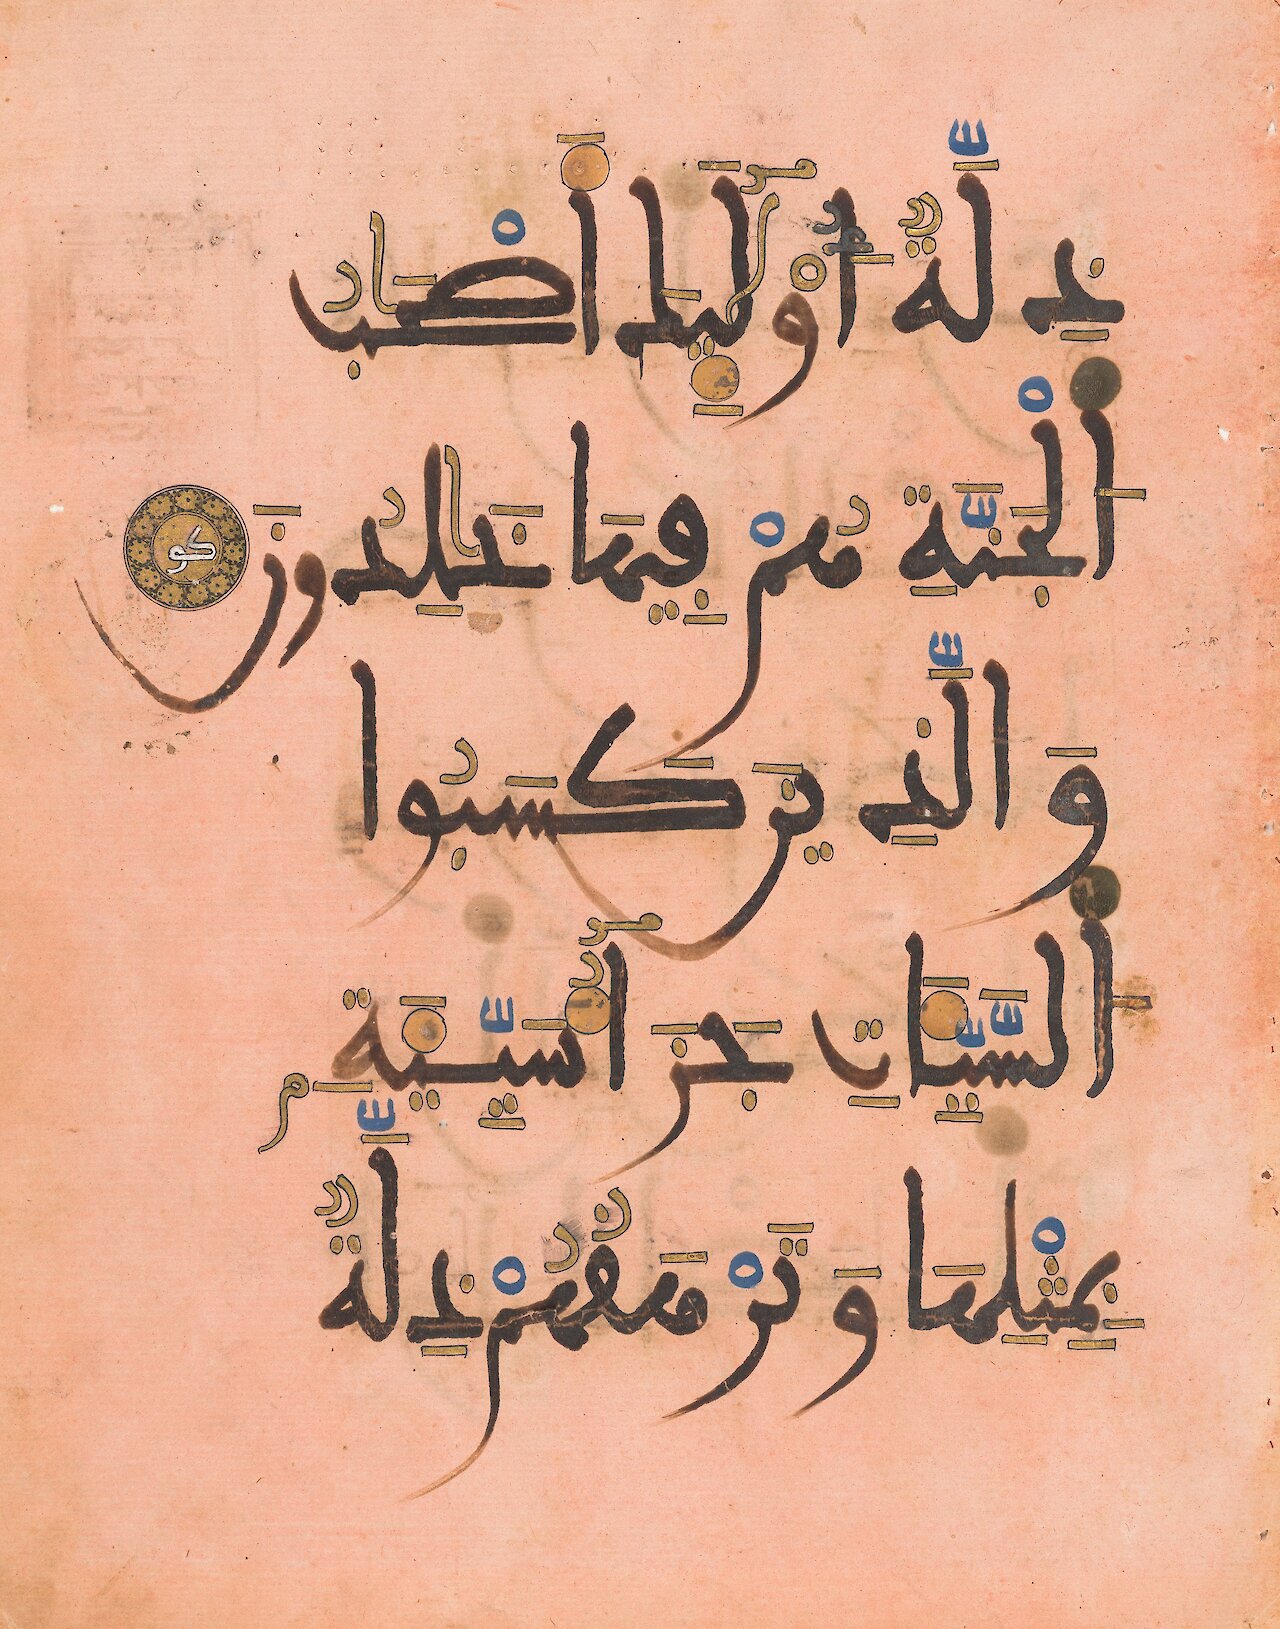 ذِلَّةٌ أُوْلَٰٓئِكَ أَصْحَٰبُ
اَ۬لْجَنَّةِ هُمْ فِيهَا خَٰلِدُونَ كو
وَالَّذِينَ كَسَبُوا
اَ۬لسَّيِّـَٔاتِ جَزَآءُ سَيِّئَةِۢ
بِمِثْلِهَا وَتَرْهَقُهُمْ ذِلَّةٌ